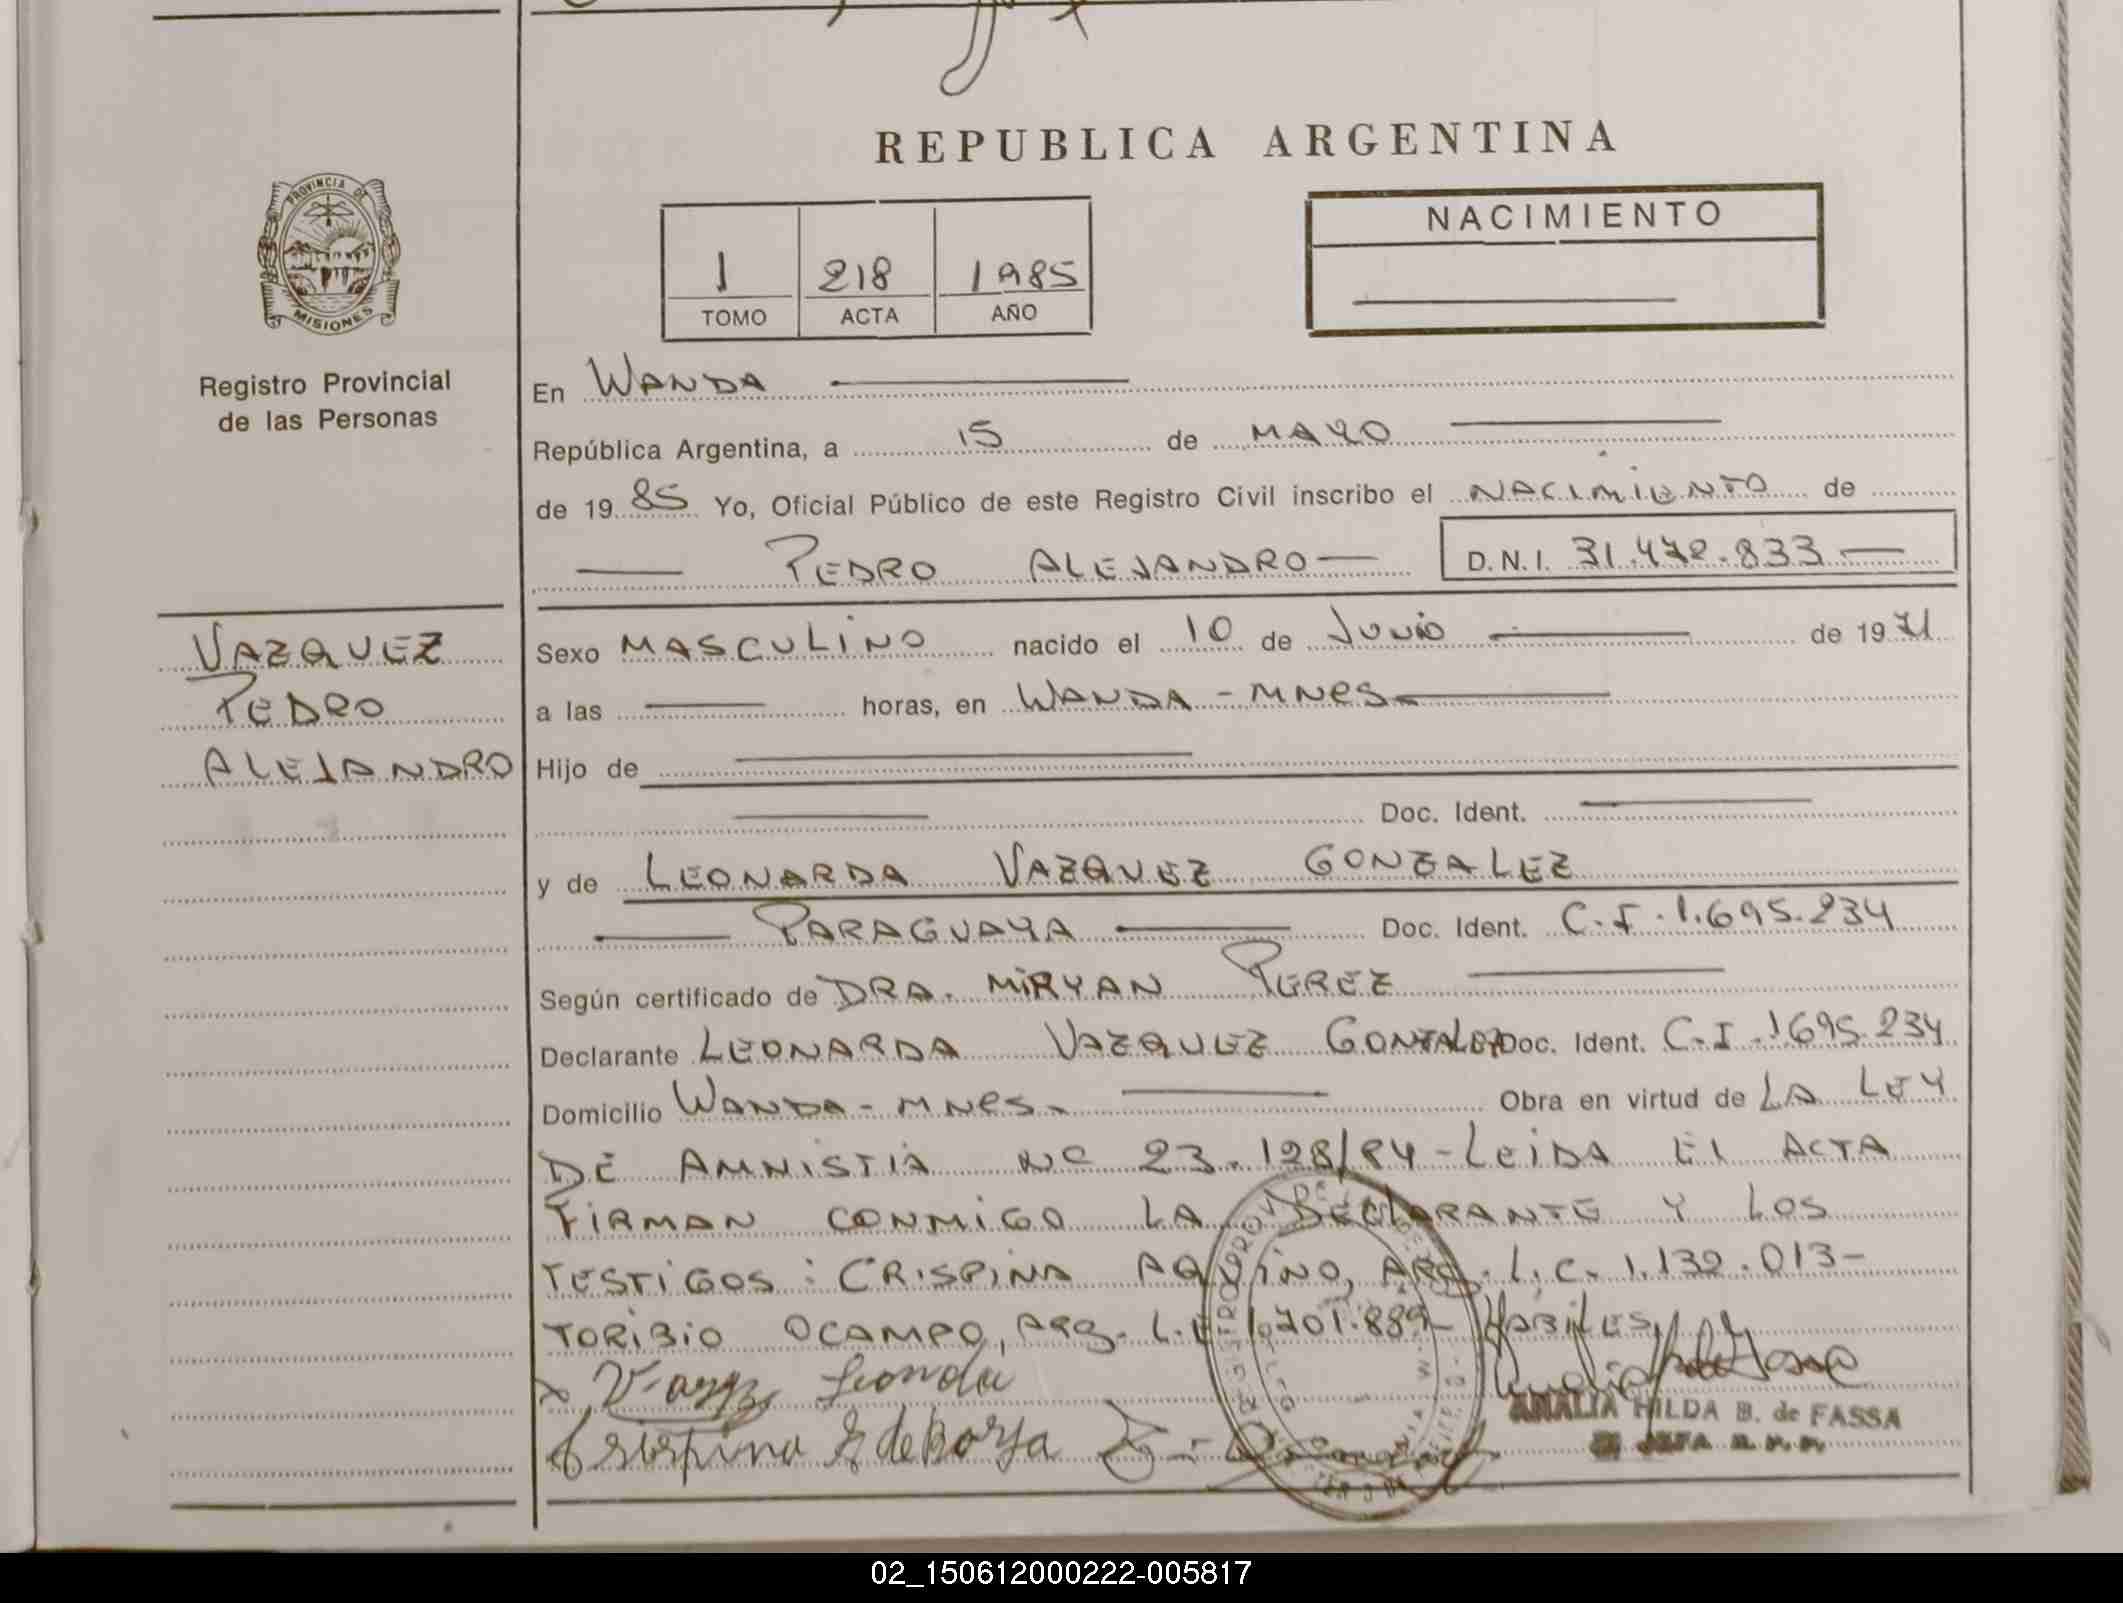 REPUBLICA ARGENTINA
PROVINCIA DE
MISIONES
Registro Provincial
de las Personas
1 218 1985
TOMO ACTA AÑO
NACIMIENTO
En WANDA
República Argentina, a 15 de MAYO
de 1985 Yo, Oficial Público de este Registro Civil inscribo el NACIMIENTO de
PEDRO ALEJANDRO D.N.I. 31.472.833
VAZQUEZ
PEDRO
ALEJANDRO
Sexo MASCULINO nacido el 10 de JUNIO de 1971
a las horas, en WANDA - MNES
Hijo de
Doc. Ident.
y de LEONARDA VAZQUEZ GONZALEZ
PARAGUAYA Doc. Ident. C.I. 1.695.234
Según certificado de DRA. MIRYAN PEREZ
Declarante LEONARDA VAZQUEZ GONZALEZ Doc. Ident. C.I. 1695.234
Domicilio WANDA - MNES. Obra en virtud de LA LEY
DE AMNISTIA Nº 23.128/84 - LEIDA EL ACTA
FIRMAN CONMIGO LA DECLARANTE Y LOS
TESTIGOS: CRISPINA AQUINO, ARG. L.C. 1.132.013-
TORIBIO OCAMPO, ARG. L.E 1.701.889- HABILES
Crispina E de Borja
ANALIA HILDA B. de FASSA
02_150612000222-005817